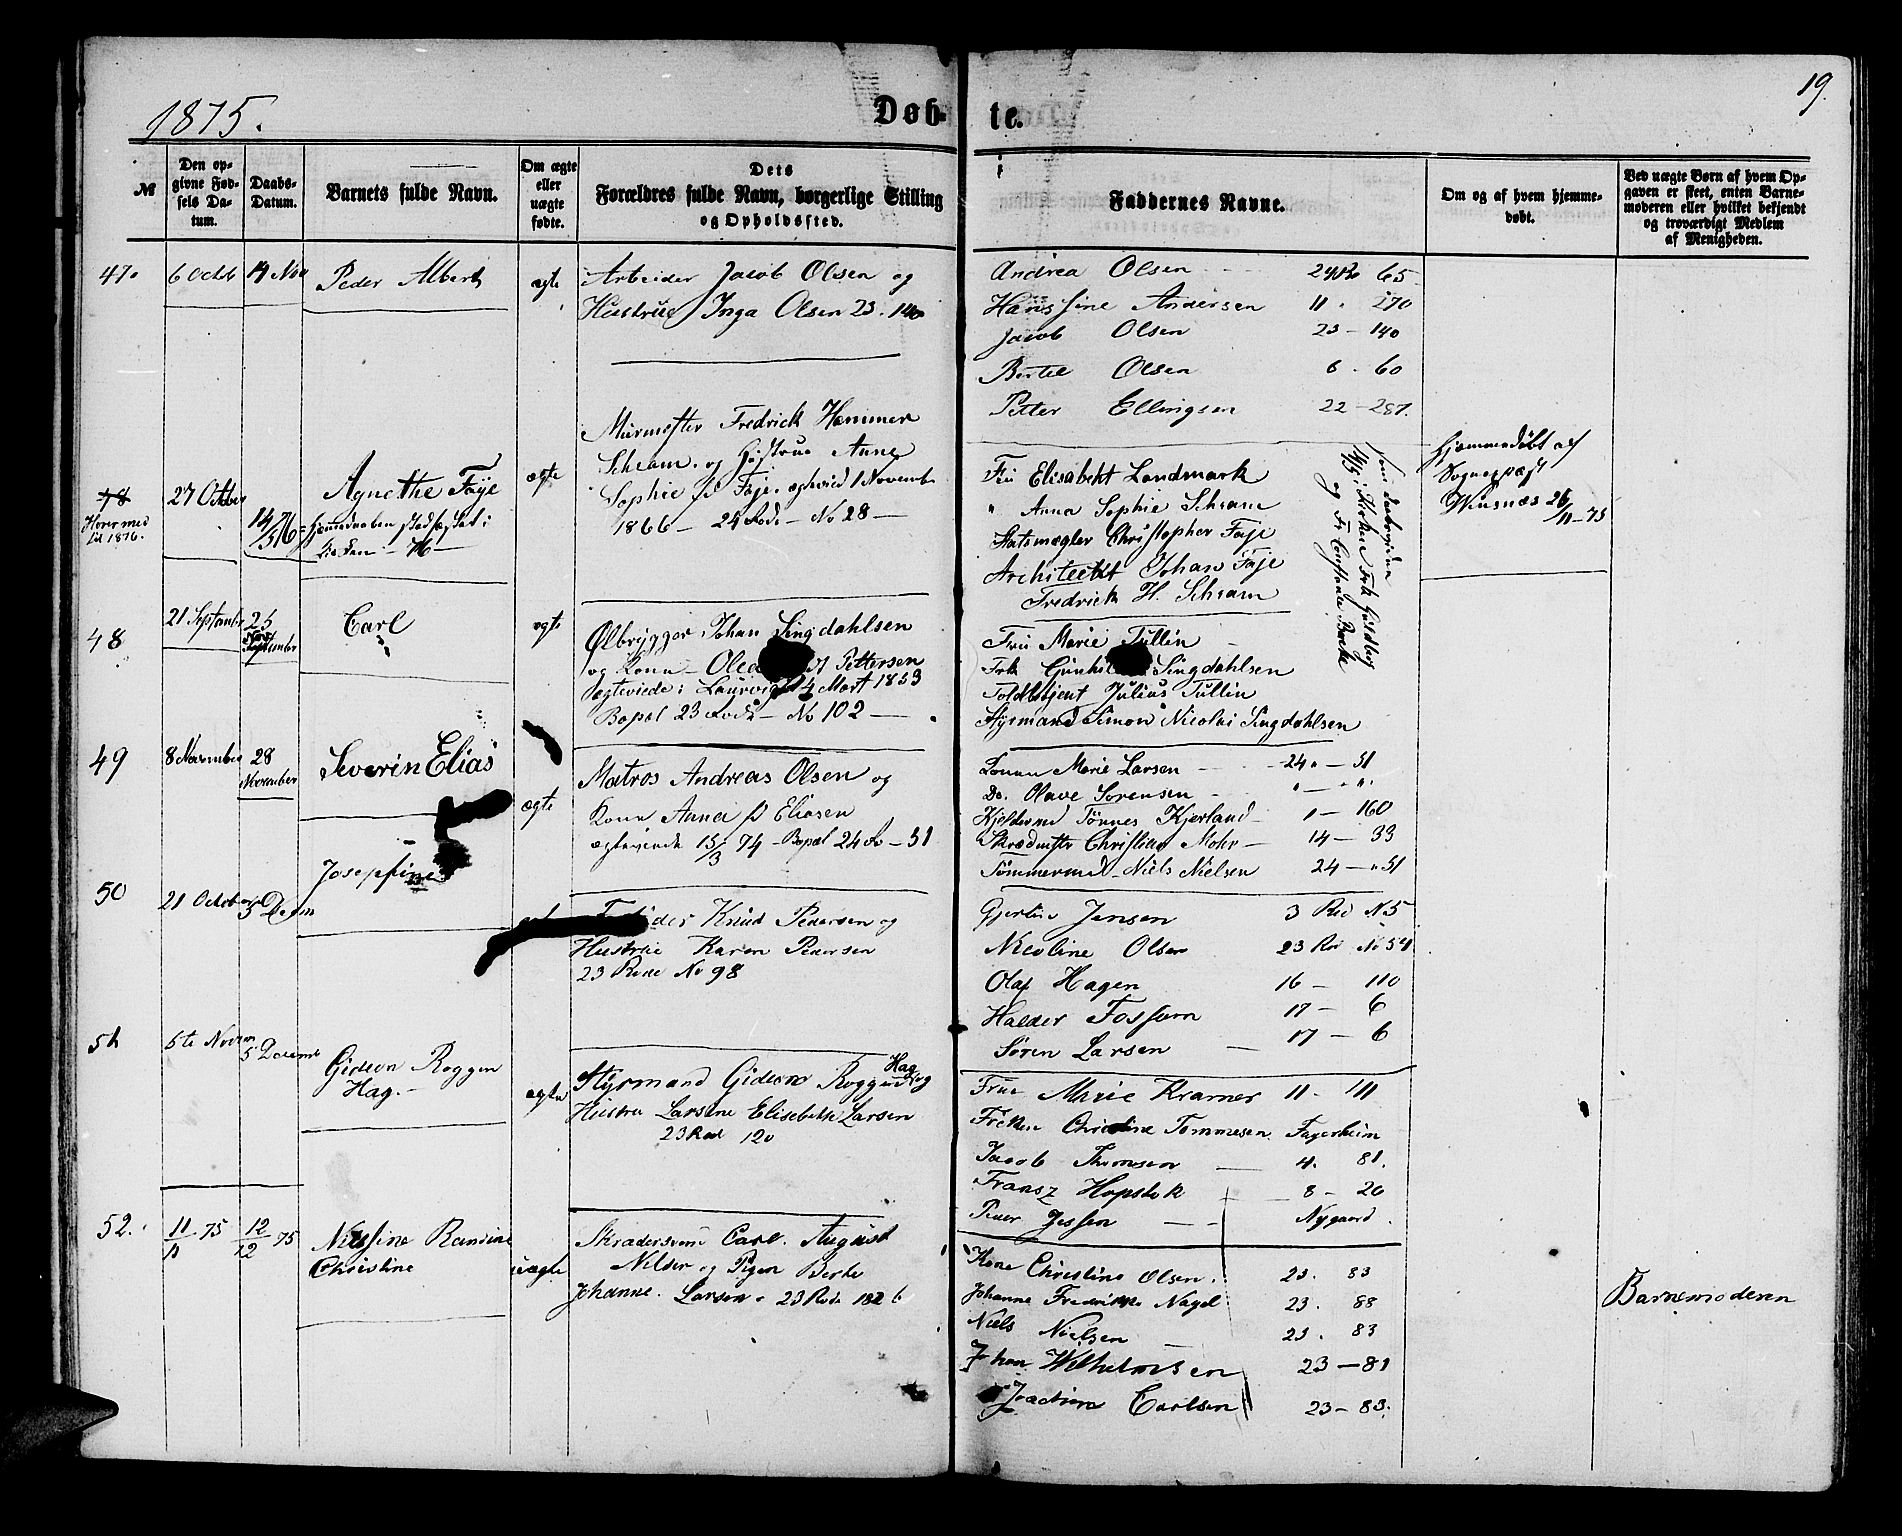 1875.
Døb-
te.
19.
№
Den op-
givne Fød-
sels Da-
tum.
Daabs-
Datum.
Barnets fulde Navn.
Om ægte
eller
uægte
fødte.
Dets
Forældres fulde Navn, borgerlige Stilling
og Opholdssted.
Faddernes Navne.
Om og af hvem hjemme-
døbt.
Ved uægte Børn af hvem Op-
gaven er skeet, enten Barne-
moderen eller hvilket bekjendt
og troværdigt Medlem
af Menigheden.
47.
6 Octob
14 Nov
Peder Albert
ægte
Arbeider Jacob Olsen og
Hustrue Inga Olsen 23. 140
Andrea Olsen 24 Ro 65
Hansine Andersen 11. 270
Jacob Olsen 23 - 140
Bertel Olsen 6 - 60
Petter Ellingsen 22 - 287.
48
Hører med
til 1876.
27 Octber
14/5 76
Agnethe Faye
hjemmedaaben stadfæstet i
Kirken - 76 -
ægte
Murmester Fredrick Hammer
Schram og Hustrue Anne
Sophie f Faje. ægtevied 1 Novembr
1866 - 24 Rode - No 28 -
Fru Elisabeht Landmark
" Anna Sophie Schram
Statsmægler Christopher Faje
Architectet Johan Faje
Fredrick H. Schram
14/5 i Kirken Frk Guldberg
og Fr Constance Backe
Hjemmedøbt af
Sognepræst
Wensnæs 26/11-75
48
21 September
25
Nov
September
Carl
ægte
Ølbrygger Johan Singdahlsen
og Kone Olea Pettersen
ægteviede i Laurvig 4 Mart 1853
Bopæl 23 Rode - No 102 -
Fru Marie Tullin
Frk Gunhil Singdahlsen
Toldbetjent Julius Tullin
Styrmand Simon Nicolai Singdahlsen
49
8 November
28
November
Severin Elias
ægte
Matros Andreas Olsen og
Kone Anna f Eliasen
ægteviede 15/3 74 - Bopæl 24 Ro - 51
Konen Marie Larsen 24 " - 51
Do. Olave Sørensen " - " "
Kjeldermd Tönnes Kjerland " - 160
Skrædmster Christian Mohr - 14 - 33
Tømmermd Niels Nielsen 24 - " 51
50
21 October
5 Decm
Josephine
Knud Pedersen og
Hustrue Karen Pedersen
23 Rode No 98
Gjertine Jensen 3 Rod N 5
Nicoline Olsen 23 Ro No 54
Olaf Hagen 16 - 110
Halder Fossum 17 - 6
Søren Larsen 17 - 6
51
6te Novm
5 Decemb
Gideon Roggen
Hag.
ægte
Styrmand Gideon Roggen Hag og
Hustru Larsine Elisebethe Larsen
23 Rod 120
Frue Marie Kramer 11 - 111
Frøken Christine Tommesen Fagerheim
Jacob Thomsen 4. 81.
Fransz Hopstok 8 - 20
Peder Jessen Nygaard
52.
11/11 75
12/12 75
Nilsine Randine
Christine
uægte
Skrædersvend Carl August
Nilsen og Pigen Berte
Johanne Larsen. 23 Rode 182 b
Kone Christine Olsen. 23. 83
Johanne Fredrikke Nagel 23. 88
Niels Nielsen 23. 83
Johan Wilhelmsen 23 - 81
Joachim Carlsen 23 - 83.
Barnemoderen